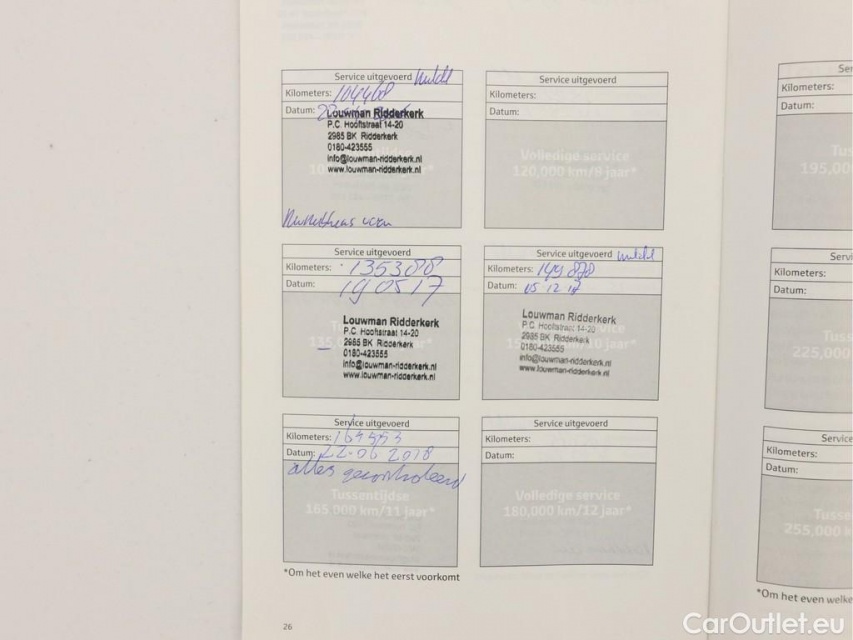 Service uitgevoerd
Kilometers: 104468
Datum:
Louwman Ridderkerk
P.C. Hooftstraat 14-20
2985 BK Ridderkerk
0180-423555
info@louwman-ridderkerk.nl
www.louwman-ridderkerk.nl
Service uitgevoerd
Kilometers:
Datum:
Volledige service
120,000 km/8 jaar*
Service uitgevoerd
Kilometers: 135388
Datum: 190517
Louwman Ridderkerk
P.C. Hooftstraat 14-20
2985 BK Ridderkerk
0180-423555
info@louwman-ridderkerk.nl
www.louwman-ridderkerk.nl
Service uitgevoerd
Kilometers: 149878
Datum: 05 12 17
Louwman Ridderkerk
P.C. Hooftstraat 14-20
2985 BK Ridderkerk
0180-423555
info@louwman-ridderkerk.nl
www.louwman-ridderkerk.nl
Service uitgevoerd
Kilometers: 164553
Datum: 22-06 2018
alles gecontroleerd
Tussentijdse
165.000 km/11 jaar*
Service uitgevoerd
Kilometers:
Datum:
Volledige service
180,000 km/12 jaar*
*Om het even welke het eerst voorkomt
26
Ser
Kilometers:
Datum:
Tus
195,00
Servi
Kilometers:
Datum:
Tuss
225,000
Service
Kilometers:
Datum:
Tusse
255,000 k
*Om het even welke
CarOutlet.eu